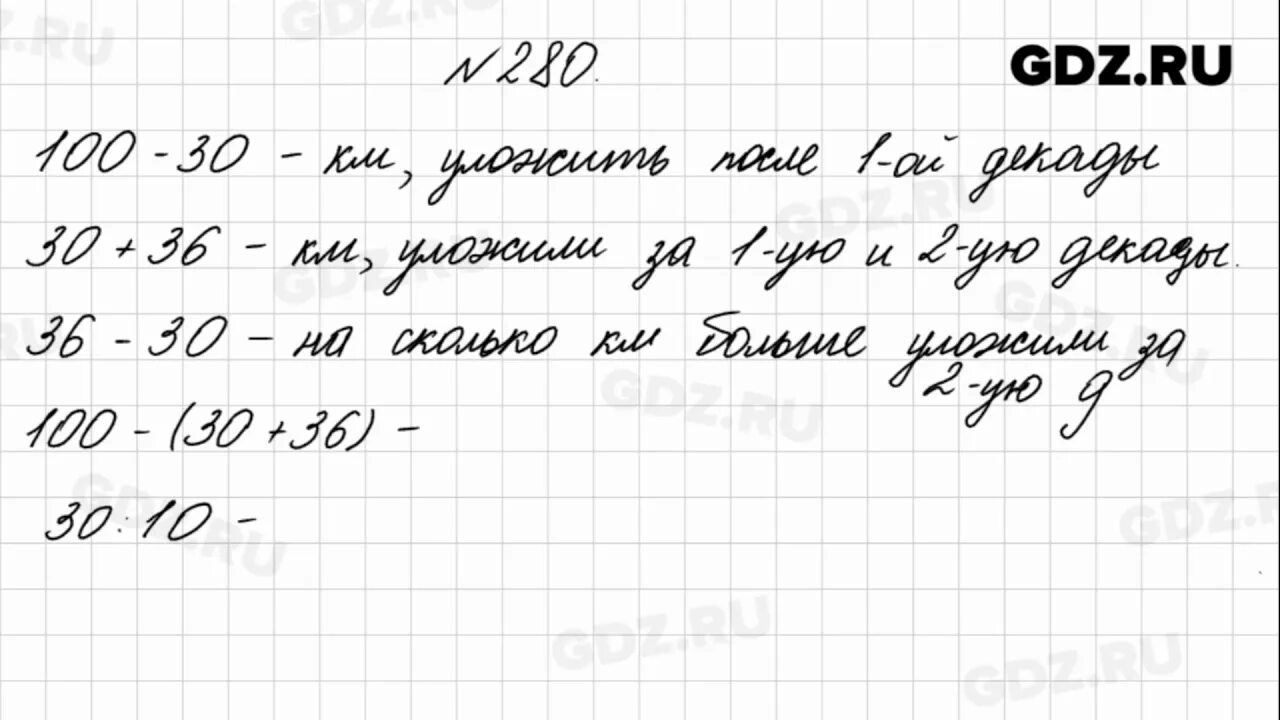 № 280.
GDZ.RU
100 - 30 - км, уложить после 1-ой декады
30 + 36 - км, уложили за 1-ую и 2-ую декады.
36 - 30 - на сколько км больше уложили за
2-ую д
100 - (30 + 36) -
30 : 10 -